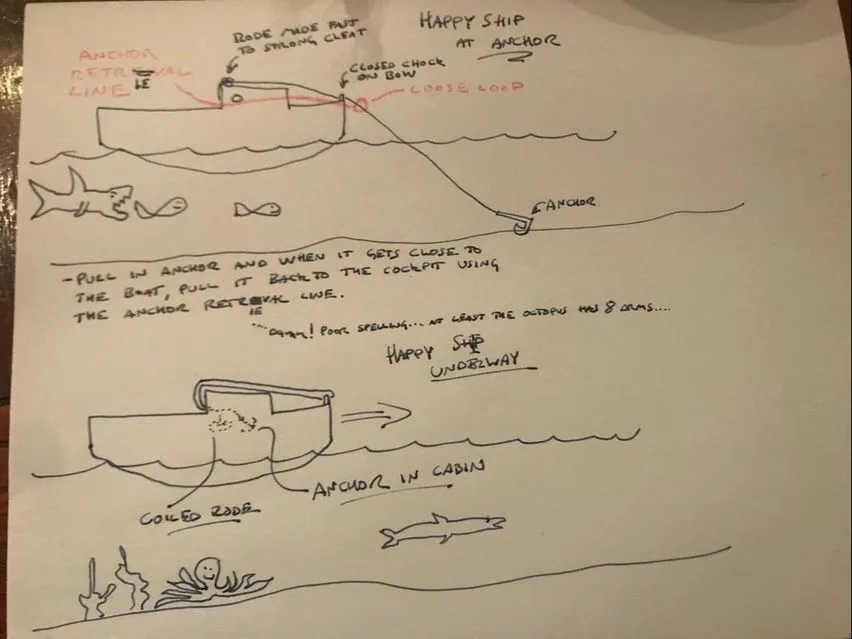 HAPPY SHIP
AT ANCHOR
RODE MADE FAST
TO STRONG CLEAT
ANCHOR
RETREVAL
IE
LINE
CLOSED CHOCK
ON BOW
LOOSE LOOP
ANCHOR
- PULL IN ANCHOR AND WHEN IT GETS CLOSE TO
THE BOAT, PULL IT BACK TO THE COCKPIT USING
THE ANCHOR RETREVAL LINE.
IE
POOR SPELLING... AT LEAST THE OCTOPUS HAS 8 ARMS....
HAPPY SHIP
UNDERWAY
ANCHOR IN CABIN
COILED RODE